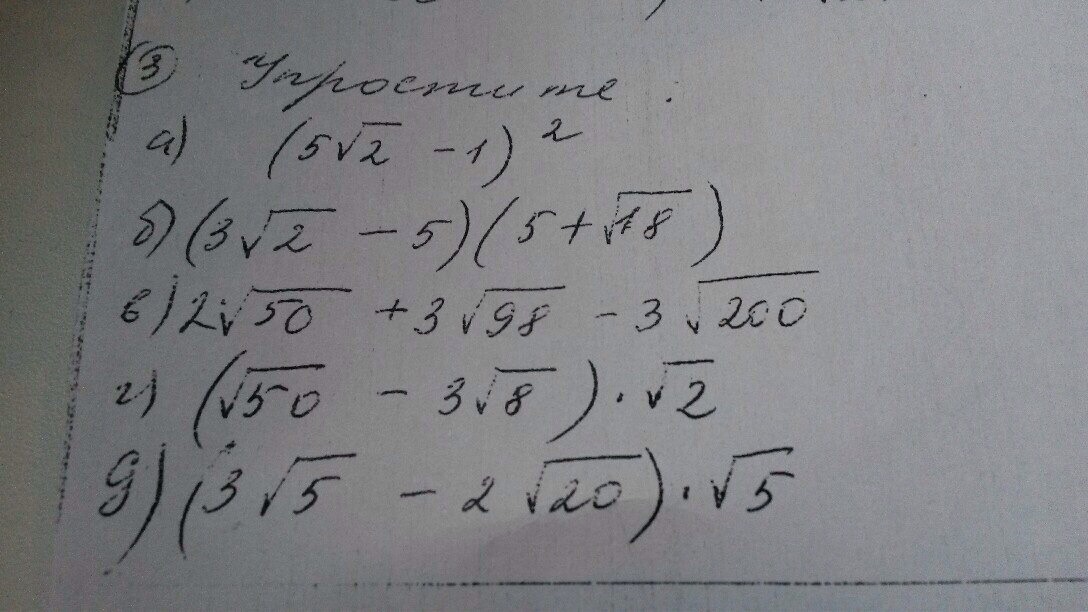 ③ Упростите :
а) (5√2 - 1)²
б) (3√2 - 5)(5 + √18)
в) 2√50 + 3√98 - 3√200
г) (√50 - 3√8) · √2
д) (3√5 - 2√20) · √5